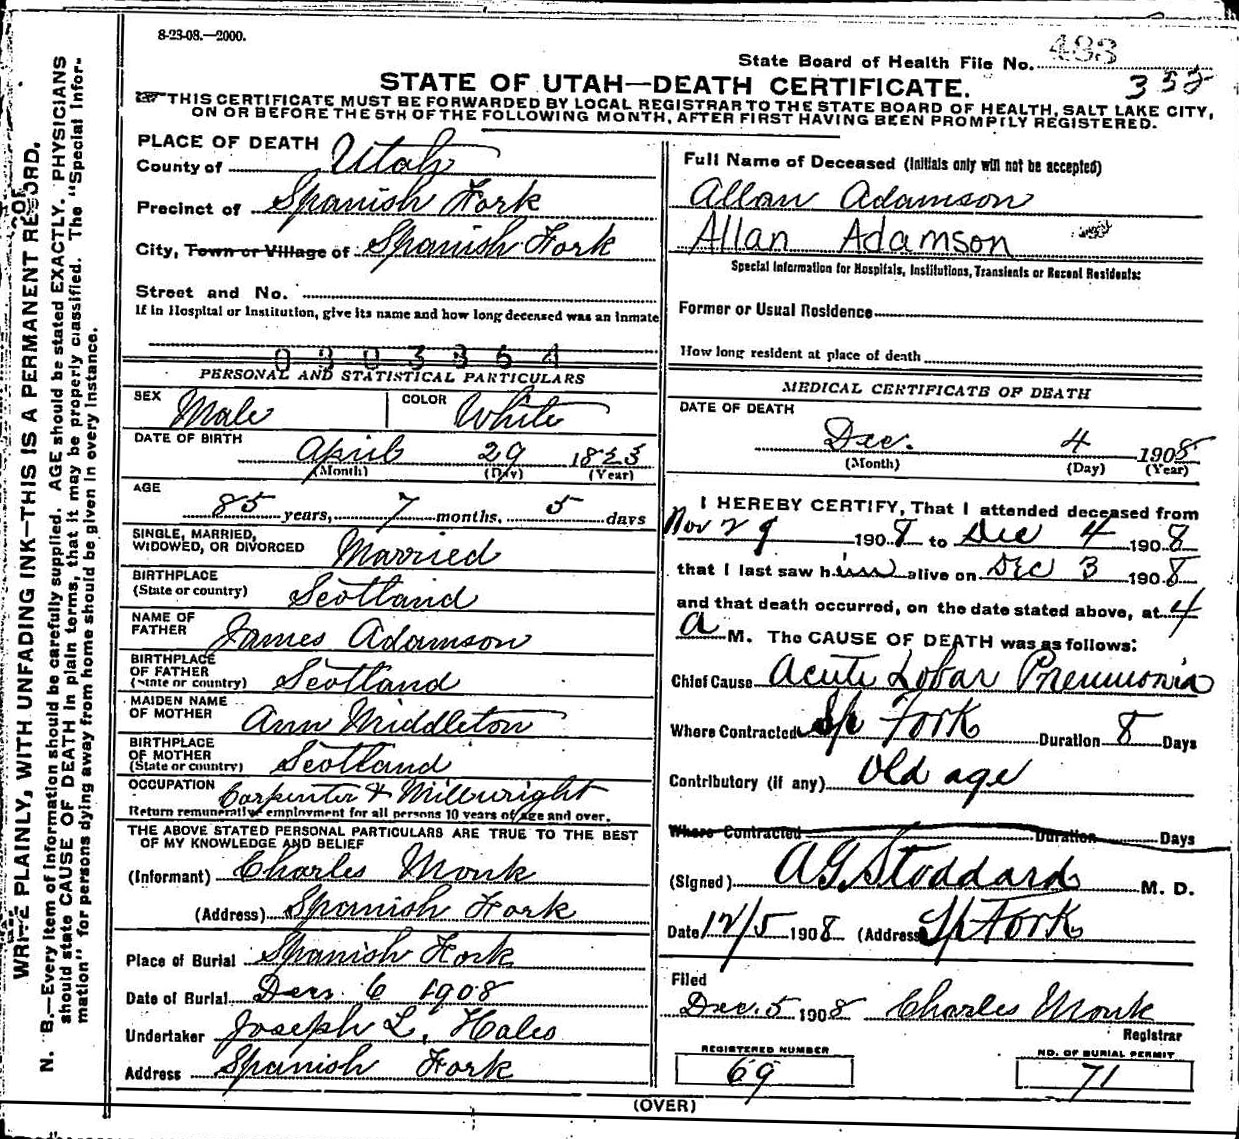 8-23-08.—2000.
State Board of Health File No. 483
352
STATE OF UTAH—DEATH CERTIFICATE.
THIS CERTIFICATE MUST BE FORWARDED BY LOCAL REGISTRAR TO THE STATE BOARD OF HEALTH, SALT LAKE CITY,
ON OR BEFORE THE 5TH OF THE FOLLOWING MONTH, AFTER FIRST HAVING BEEN PROMPTLY REGISTERED.
WRITE PLAINLY, WITH UNFADING INK—THIS IS A PERMANENT RECORD.
N. B.—Every item of information should be carefully supplied. AGE should be stated EXACTLY. PHYSICIANS
should state CAUSE OF DEATH in plain terms, that it may be properly classified. The "Special Infor-
mation" for persons dying away from home should be given in every instance.
PLACE OF DEATH
County of Utah
Precinct of Spanish Fork
City, Town or Village of Spanish Fork
Street and No.
If in Hospital or Institution, give its name and how long deceased was an inmate
0303354
PERSONAL AND STATISTICAL PARTICULARS
SEX Male COLOR White
DATE OF BIRTH April 29 1823
(Month) (Day) (Year)
AGE
85 years, 7 months, 5 days
SINGLE, MARRIED,
WIDOWED, OR DIVORCED Married
BIRTHPLACE
(State or country) Scotland
NAME OF
FATHER James Adamson
BIRTHPLACE
OF FATHER
(State or country) Scotland
MAIDEN NAME
OF MOTHER Ann Middleton
BIRTHPLACE
OF MOTHER
(State or country) Scotland
OCCUPATION Carpenter & Millwright
Return remunerative employment for all persons 10 years of age and over.
THE ABOVE STATED PERSONAL PARTICULARS ARE TRUE TO THE BEST
OF MY KNOWLEDGE AND BELIEF
(Informant) Charles Monk
(Address) Spanish Fork
Place of Burial Spanish Fork
Date of Burial Dec. 6 1908
Undertaker Joseph L. Hales
Address Spanish Fork
Full Name of Deceased (Initials only will not be accepted)
Allan Adamson
Allan Adamson
Special Information for Hospitals, Institutions, Transients or Recent Residents:
Former or Usual Residence
How long resident at place of death
MEDICAL CERTIFICATE OF DEATH
DATE OF DEATH
Dec. 4 1908
(Month) (Day) (Year)
I HEREBY CERTIFY, That I attended deceased from
Nov 29 1908 to Dec 4 1908
that I last saw him alive on Dec 3 1908
and that death occurred, on the date stated above, at 4
a M. The CAUSE OF DEATH was as follows:
Chief Cause Acute Lobar Pneumonia
Where Contracted Sp Fork Duration 8 Days
Contributory (if any) Old age
Where Contracted Duration Days
(Signed) A G Stoddard M. D.
Date 12/5 1908 (Address Sp Fork
Filed
Dec. 5 1908 Charles Monk
Registrar
REGISTERED NUMBER
69
NO. OF BURIAL PERMIT
71
(OVER)